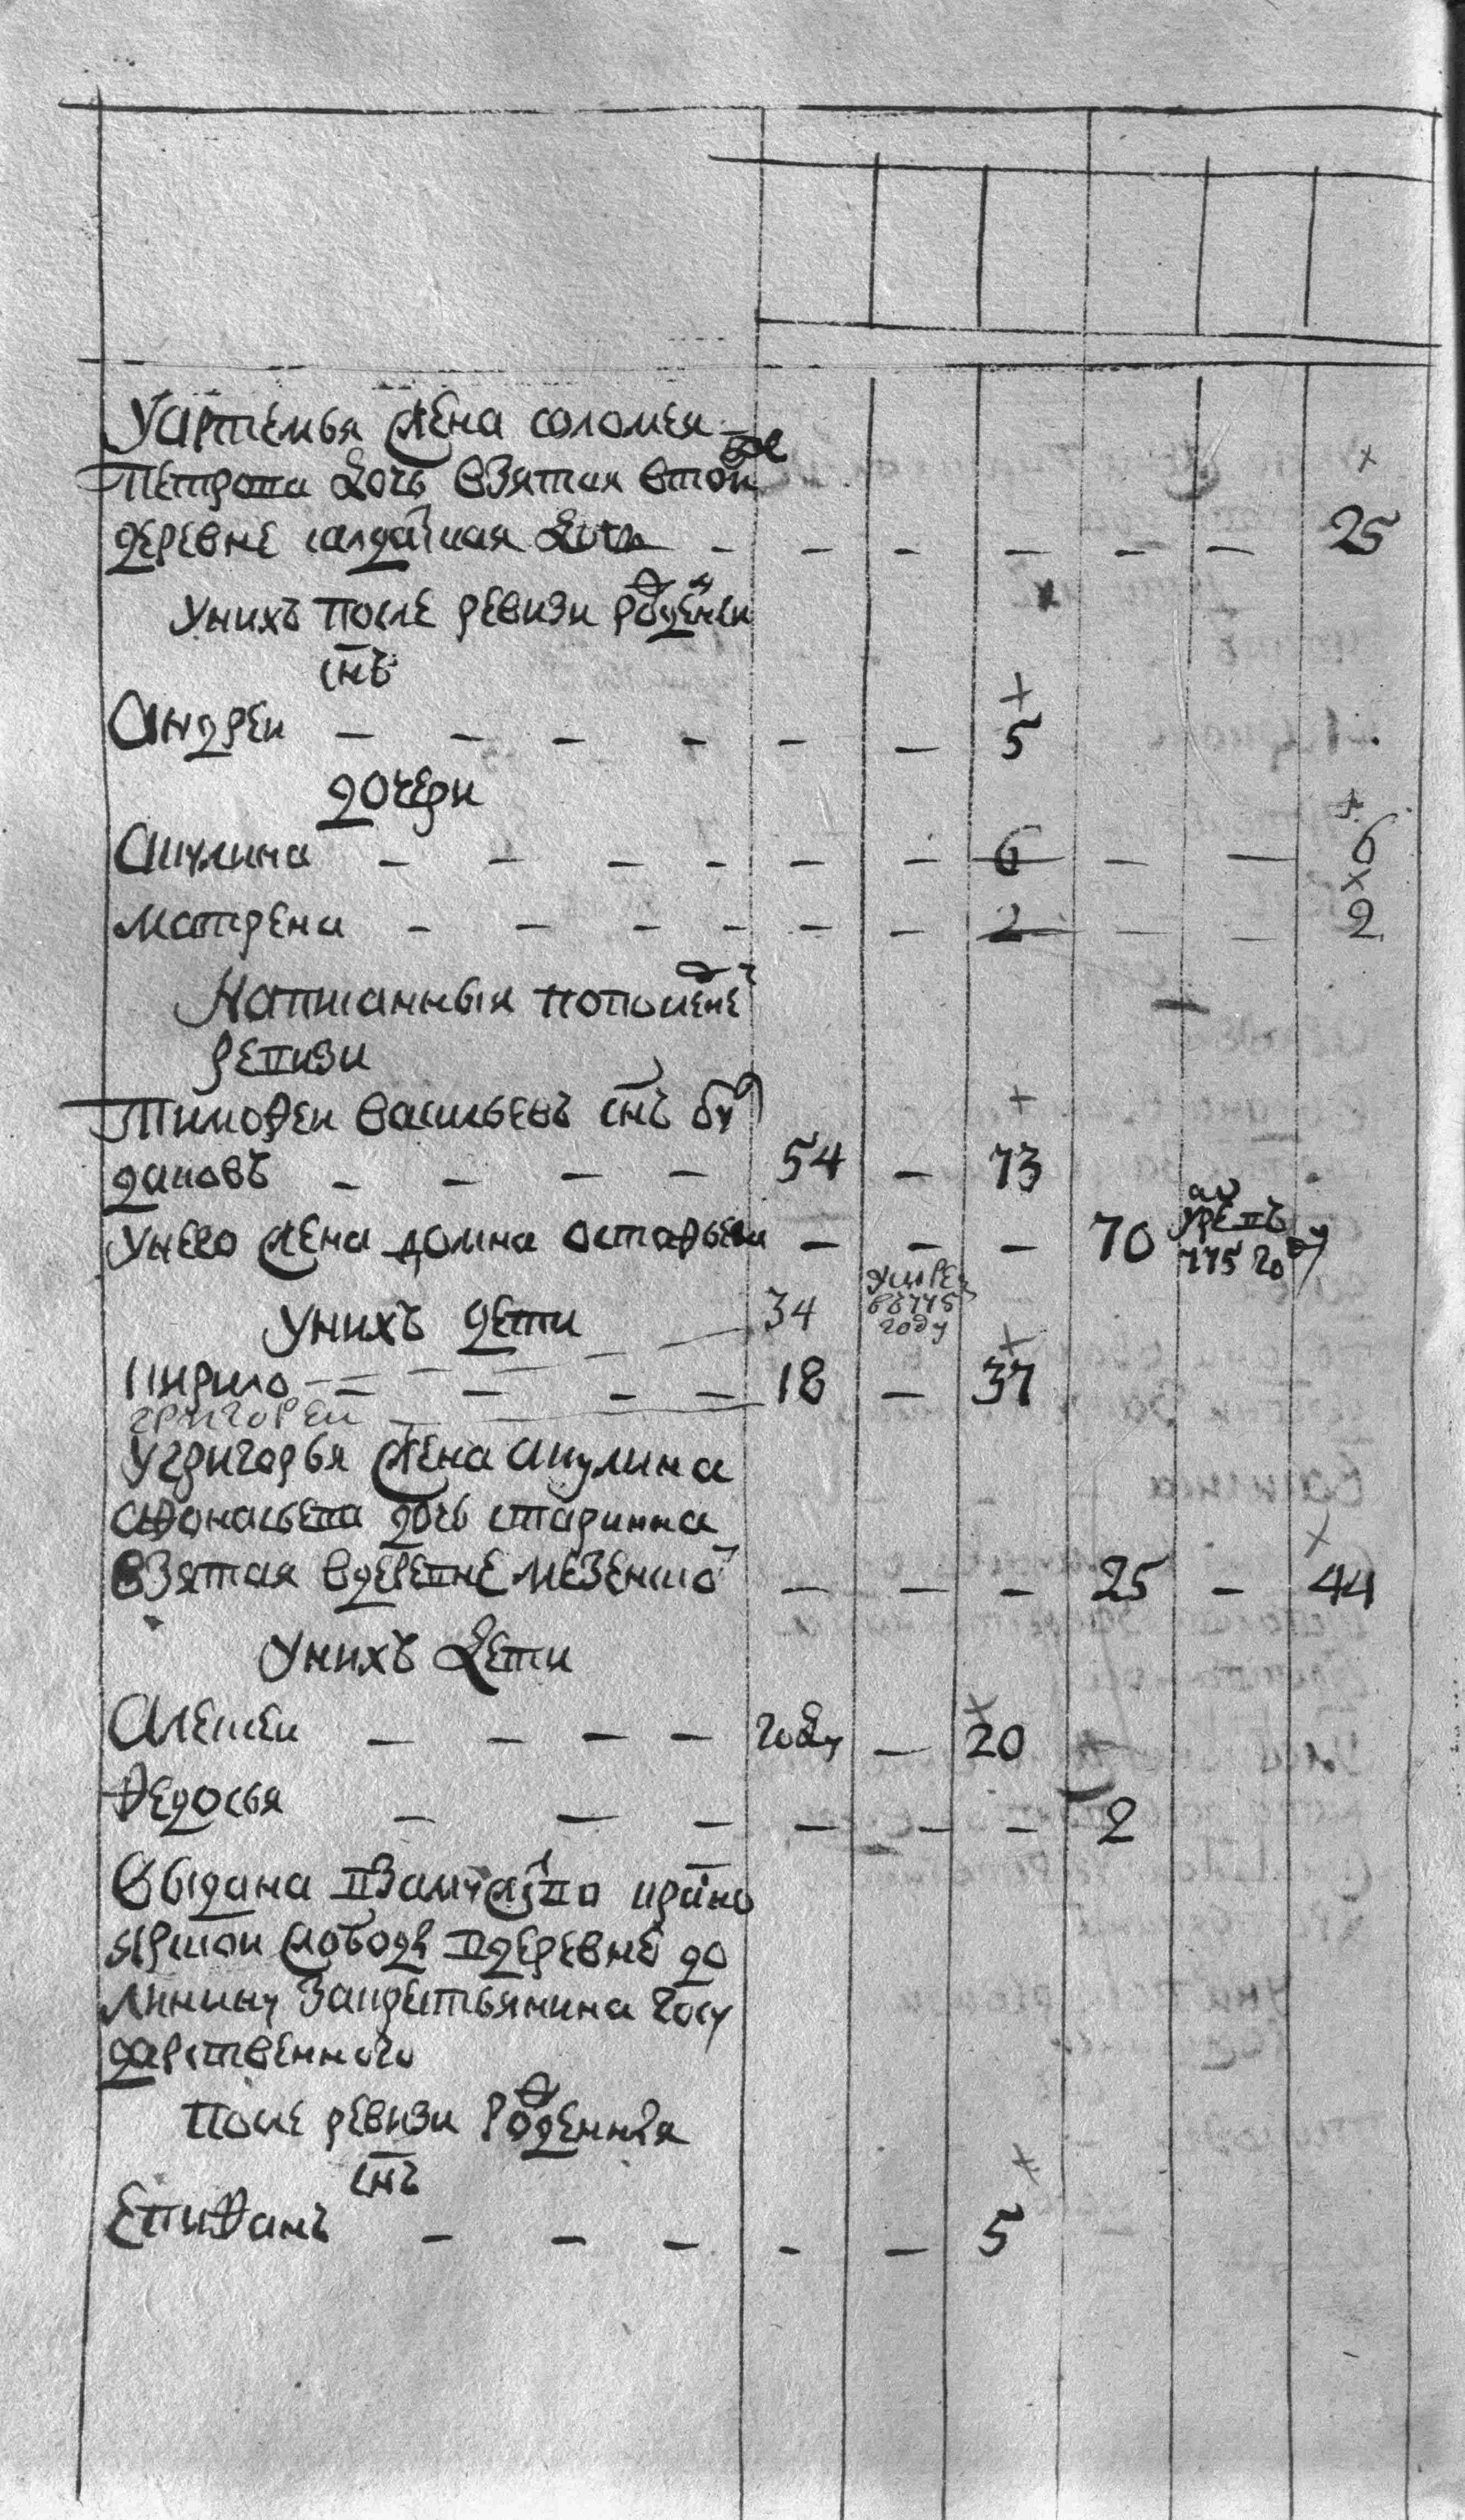 У артемья жена соломея
Петрова дочь взятая втой же
деревне салдацкая дочь - - - - - - 25
Унихъ после ревизи рожденни
снъ
Андреи - - - - - - 5
дочери
Акулина - - - - - - 6 - - 6
матрена - - - - - - 2 - - 2
Написанныя попоследнеи
ревизи
Тимофеи васильевъ снъ буд
даковъ - - - - 54 - 73
Унего жена домна остафьева - - - 70 умре въ 775 году
Унихъ дети 34 умре въ 775 году
Кирило - - - - 18 - 37
григореи
Угригорья жена акулина
афонасьева дочь старинна
взятая вдеревне мезенцово - - - 25 - 44
Унихъ дети
Алексеи - - - - году - 20
Федосья - - - - - - 2
Выдана взамужство крăсно
ярскои слободе вдеревне до
лматову закрестьянина госу
дарственного
После ревизи рожденныя
снъ
Епифанъ - - - - - 5